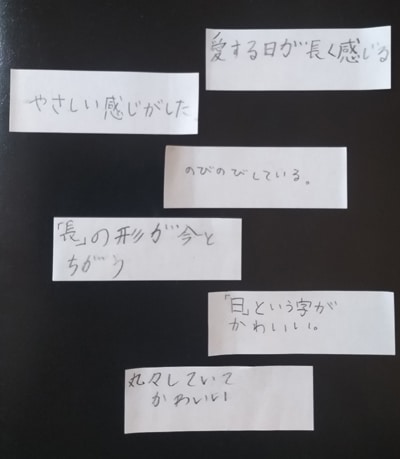 愛する日が長く感じる
やさしい感じがした
のびのびしている。
「長」の形が今と
ちがう
「日」という字が
かわいい。
丸々していて
かわいい